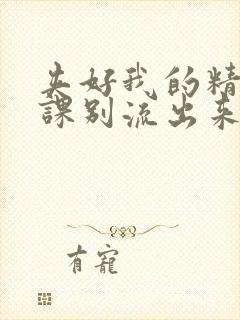 夹好我的精
課别流出来
有寵